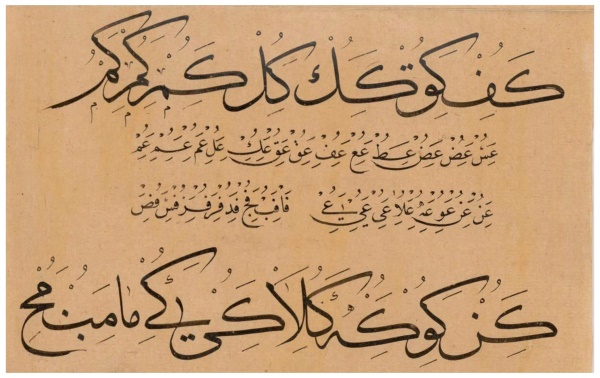 كف كق كك كل كم كم كم
عس عص عض عط عع عف عق عو عك عل عم عم عم
عن عن عو عه علا عى عى عے فا فب فج فد فر فر فس فص
كن كو كه كلا كى كے ما مب مح